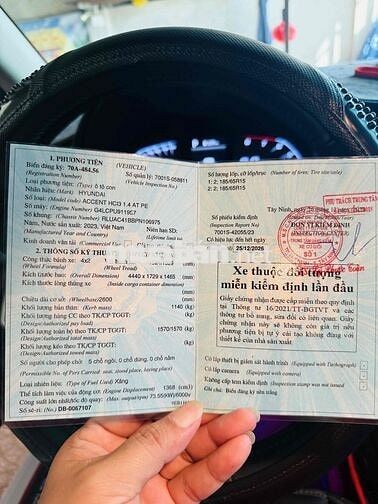 1. PHƯƠNG TIỆN (VEHICLE)
Biển đăng ký: 70A-484.56 Số quản lý: 7001S-058811
(Registration Number) (Vehicle Inspection No.)
Loại phương tiện: (Type) ô tô con
Nhãn hiệu: (Mark) HYUNDAI
Số loại: (Model code) ACCENT HCI3 1.4 AT PE
Số máy: (Engine Number) G4LCPU9119S7
Số khung: (Chassis Number) RLUAC41BBPN106975
Năm, Nước sản xuất: 2023, Việt Nam Niên hạn SD:
(Manufactured Year and Country) (Lifetime limit to)
Kinh doanh vận tải
(Commercial Use)
2. THÔNG SỐ KỸ THUẬT
Công thức bánh xe:
(Wheel Formula) (Wheel Tread)
Kích thước bao: (Overall Dimension) 4440 x 1729 x 1465 (mm)
Kích thước lòng thùng xe (Inside cargo container dimension)
(mm)
Chiều dài cơ sở: (Wheelbase) 2600 (mm)
Khối lượng bản thân: (Kerb mass) 1140 (kg)
Khối lượng hàng CC theo TK/CP TGGT:
(Design/Authorized pay load)
Khối lượng toàn bộ theo TK/CP TGGT: 1570/1570 (kg)
(Design/Authorized total mass)
Khối lượng kéo theo TK/CP TGGT:
(Design/Authorized towed mass)
Số người cho phép chở: 5 chỗ ngồi, 0 chỗ đứng, 0 chỗ nằm
(Permissible No. of Pers Carried: seat, stood place, laying place)
Loại nhiên liệu: (Type of Fuel Used) Xăng
Thể tích làm việc của động cơ: (Engine Displacement) 1368 (cm3)
Công suất lớn nhất/tốc độ quay: (Max. output/rpm) 73.55kW/6000v
Số sê-ri: (No.) DB-0067107
Số lượng lốp, cỡ lốp/trục (Number of tires; Tire size/axle)
1: 2; 185/65R15
2: 2; 185/65R15
PHỤ TRÁCH TRUNG TÂM
Số phiếu kiểm định
(Inspection Report No)
7001S-42095/23
Có hiệu lực đến hết ngày
25/12/2026
Tây Ninh,
ĐƠN VỊ KIỂM ĐỊNH
(INSPECTION CENTER)
SỐ 1
Xe thuộc đối tượng
miễn kiểm định lần đầu
Giấy chứng nhận được cấp miễn theo quy định
tại Thông tư 16/2021/TT-BGTVT và các
thông tư bổ sung, sửa đổi có liên quan. Giấy
chứng nhận này sẽ không còn giá trị nếu
phương tiện bị tự ý cải tạo không đúng với
thiết kế của nhà sản xuất.
Có lắp thiết bị giám sát hành trình (Equipped with Tachograph)
Có lắp camera (Equipped with camera)
Không cấp tem kiểm định (Inspection stamp was not issued)
Ghi chú: Biển đăng ký nền trắng